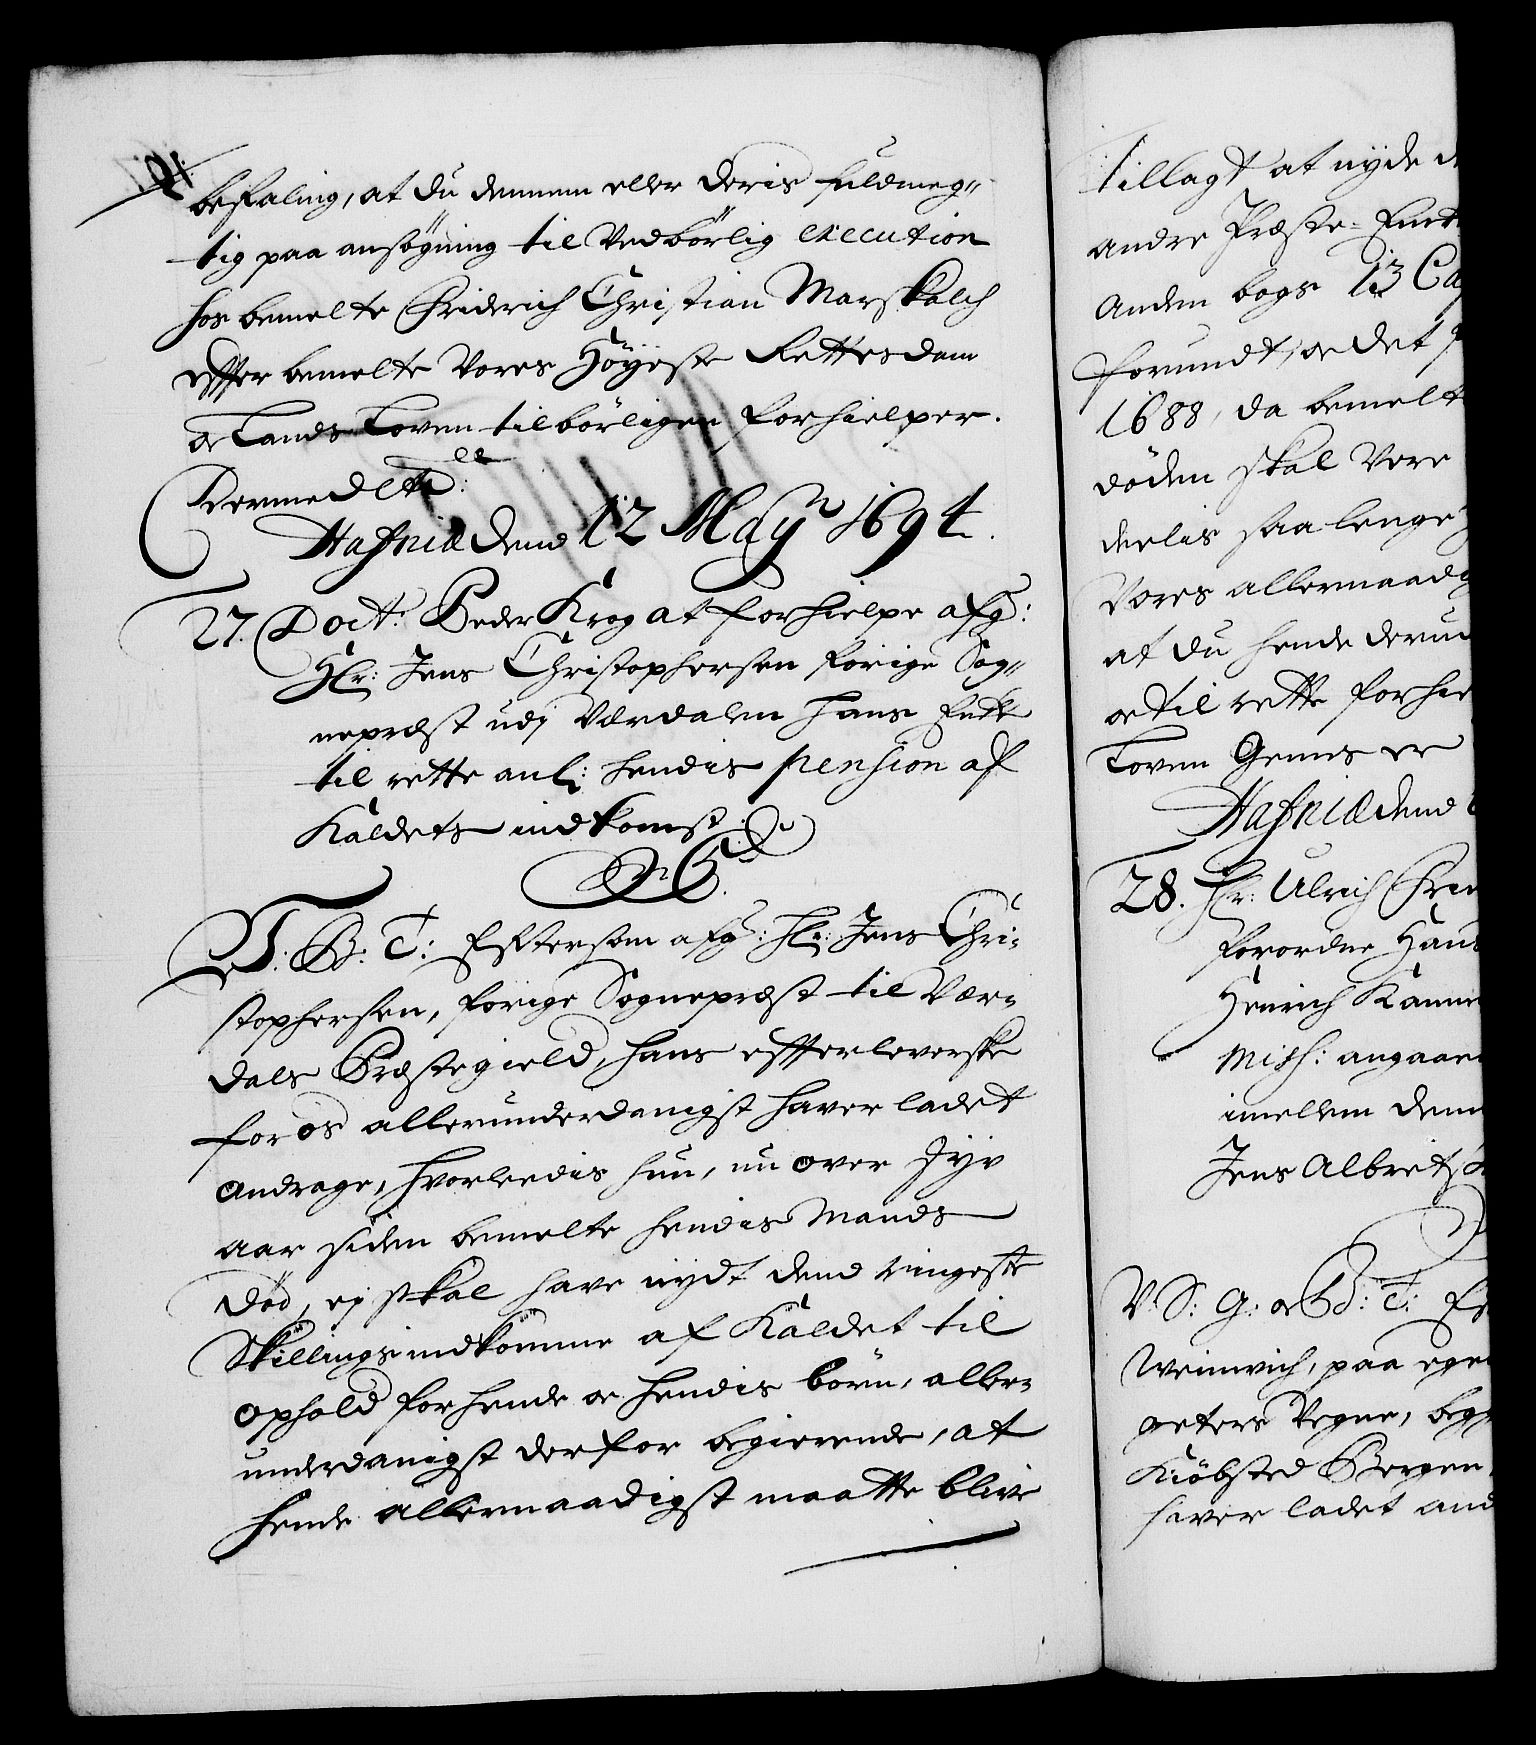 befaling, at du dennem eller deris fuldmeg„
tig paa ansøgning til Vedbörlig execution
hos bemelte Friderich Christian Marskalch
effter bemelte Vores Höyeste Rettes dom
oc Lands Loven tilbörligen forhielper.
Dermed etc:
Hafniæ dend 12 Maÿ 1694.
27. Doct: Peder Krog at forhielpe afg:
Hr: Jens Christophersen forige Sog„
nepræst udj Værdalen hans Enke
til rette anl: hendis pension af
Kaldets indkomst.
C5.
V: G: T: Eftersom afg: Hr: Jens Chri-
stophersen, forige Sognepræst til Vær-
dals Præstegield, hans effterleverske
for os allerunderdanigst haver ladet
andrage, hvorledis hun, nu over Fyv
aar siden bemelte hendis Mands
död, ej skal have nydt dend ringeste
Skillings indkomme af Kaldet til
ophold for hende oc hendis börn, aller-
underdanigst derfor begierende, at
hende allernaadigst maatte blive
tillagt at nyde
andre Præste-Enk
anden bogs 13 Ca
forundt, oc det
1688, da bemelt
döden skal Vere
deelis saa lenge
Vores allernaadig
at du hende derud
oc til rette forhie
Loven Gemes er
Hafniæ dend
28. Hr: Ulrich Frid
forordne Hans
Henrich Kanne
Miss: angaaen
imellem dem
Jens Albrets
V: S: G: oc B: T: Ef
Weinwich, paa egen
geters Vegne, beg
Kiöbsted Bergen,
haver ladet and